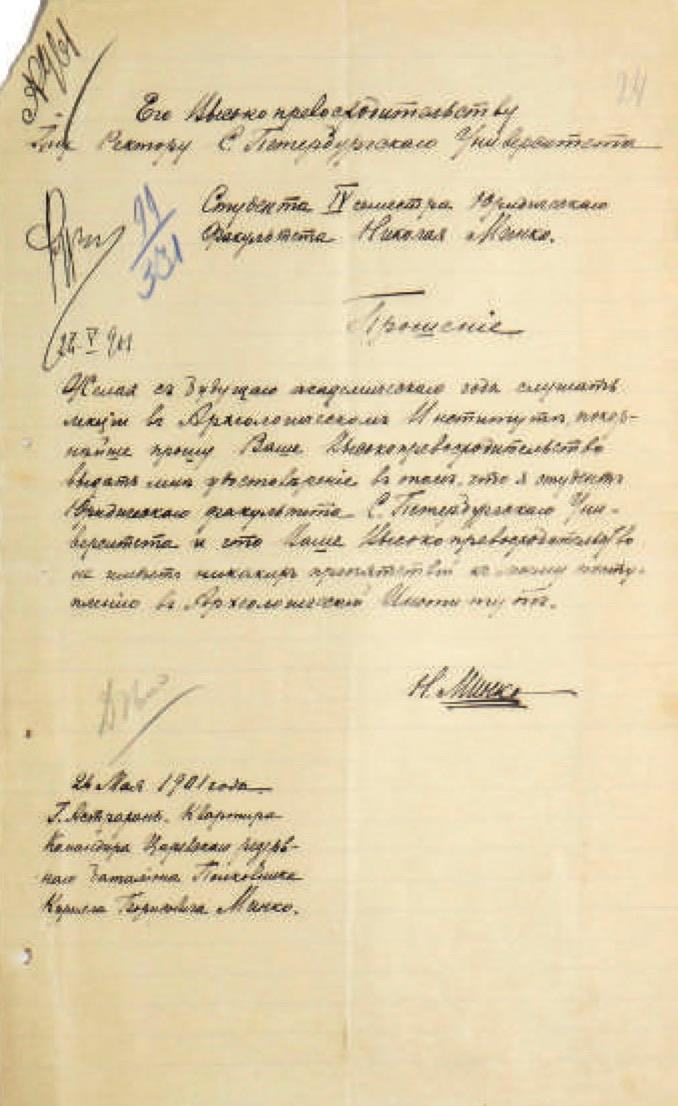 24
Его Высокопревосходительству
Ректору С. Петербургскаго Университета
Студента IV семестра Юридическаго
факультета Николая Минко.
11/331
Прошеніе
V 901
Желая съ будущаго академическаго года слушать
лекціи въ Археологическомъ Институтѣ, покор-
нѣйше прошу Ваше Высокопревосходительство
выдать мнѣ удостовѣреніе въ томъ, что я студентъ
Юридическаго факультета С. Петербургскаго Уни-
верситета и что Ваше Высокопревосходительство
не имѣетъ никакихъ препятствій къ моему посту-
пленію въ Археологическій Институтъ.
Н. Минко
26 Мая 1901 года
Г. Астрахань. Квартира
Командира Царевскаго резерв-
наго баталіона Полковника
Минко.